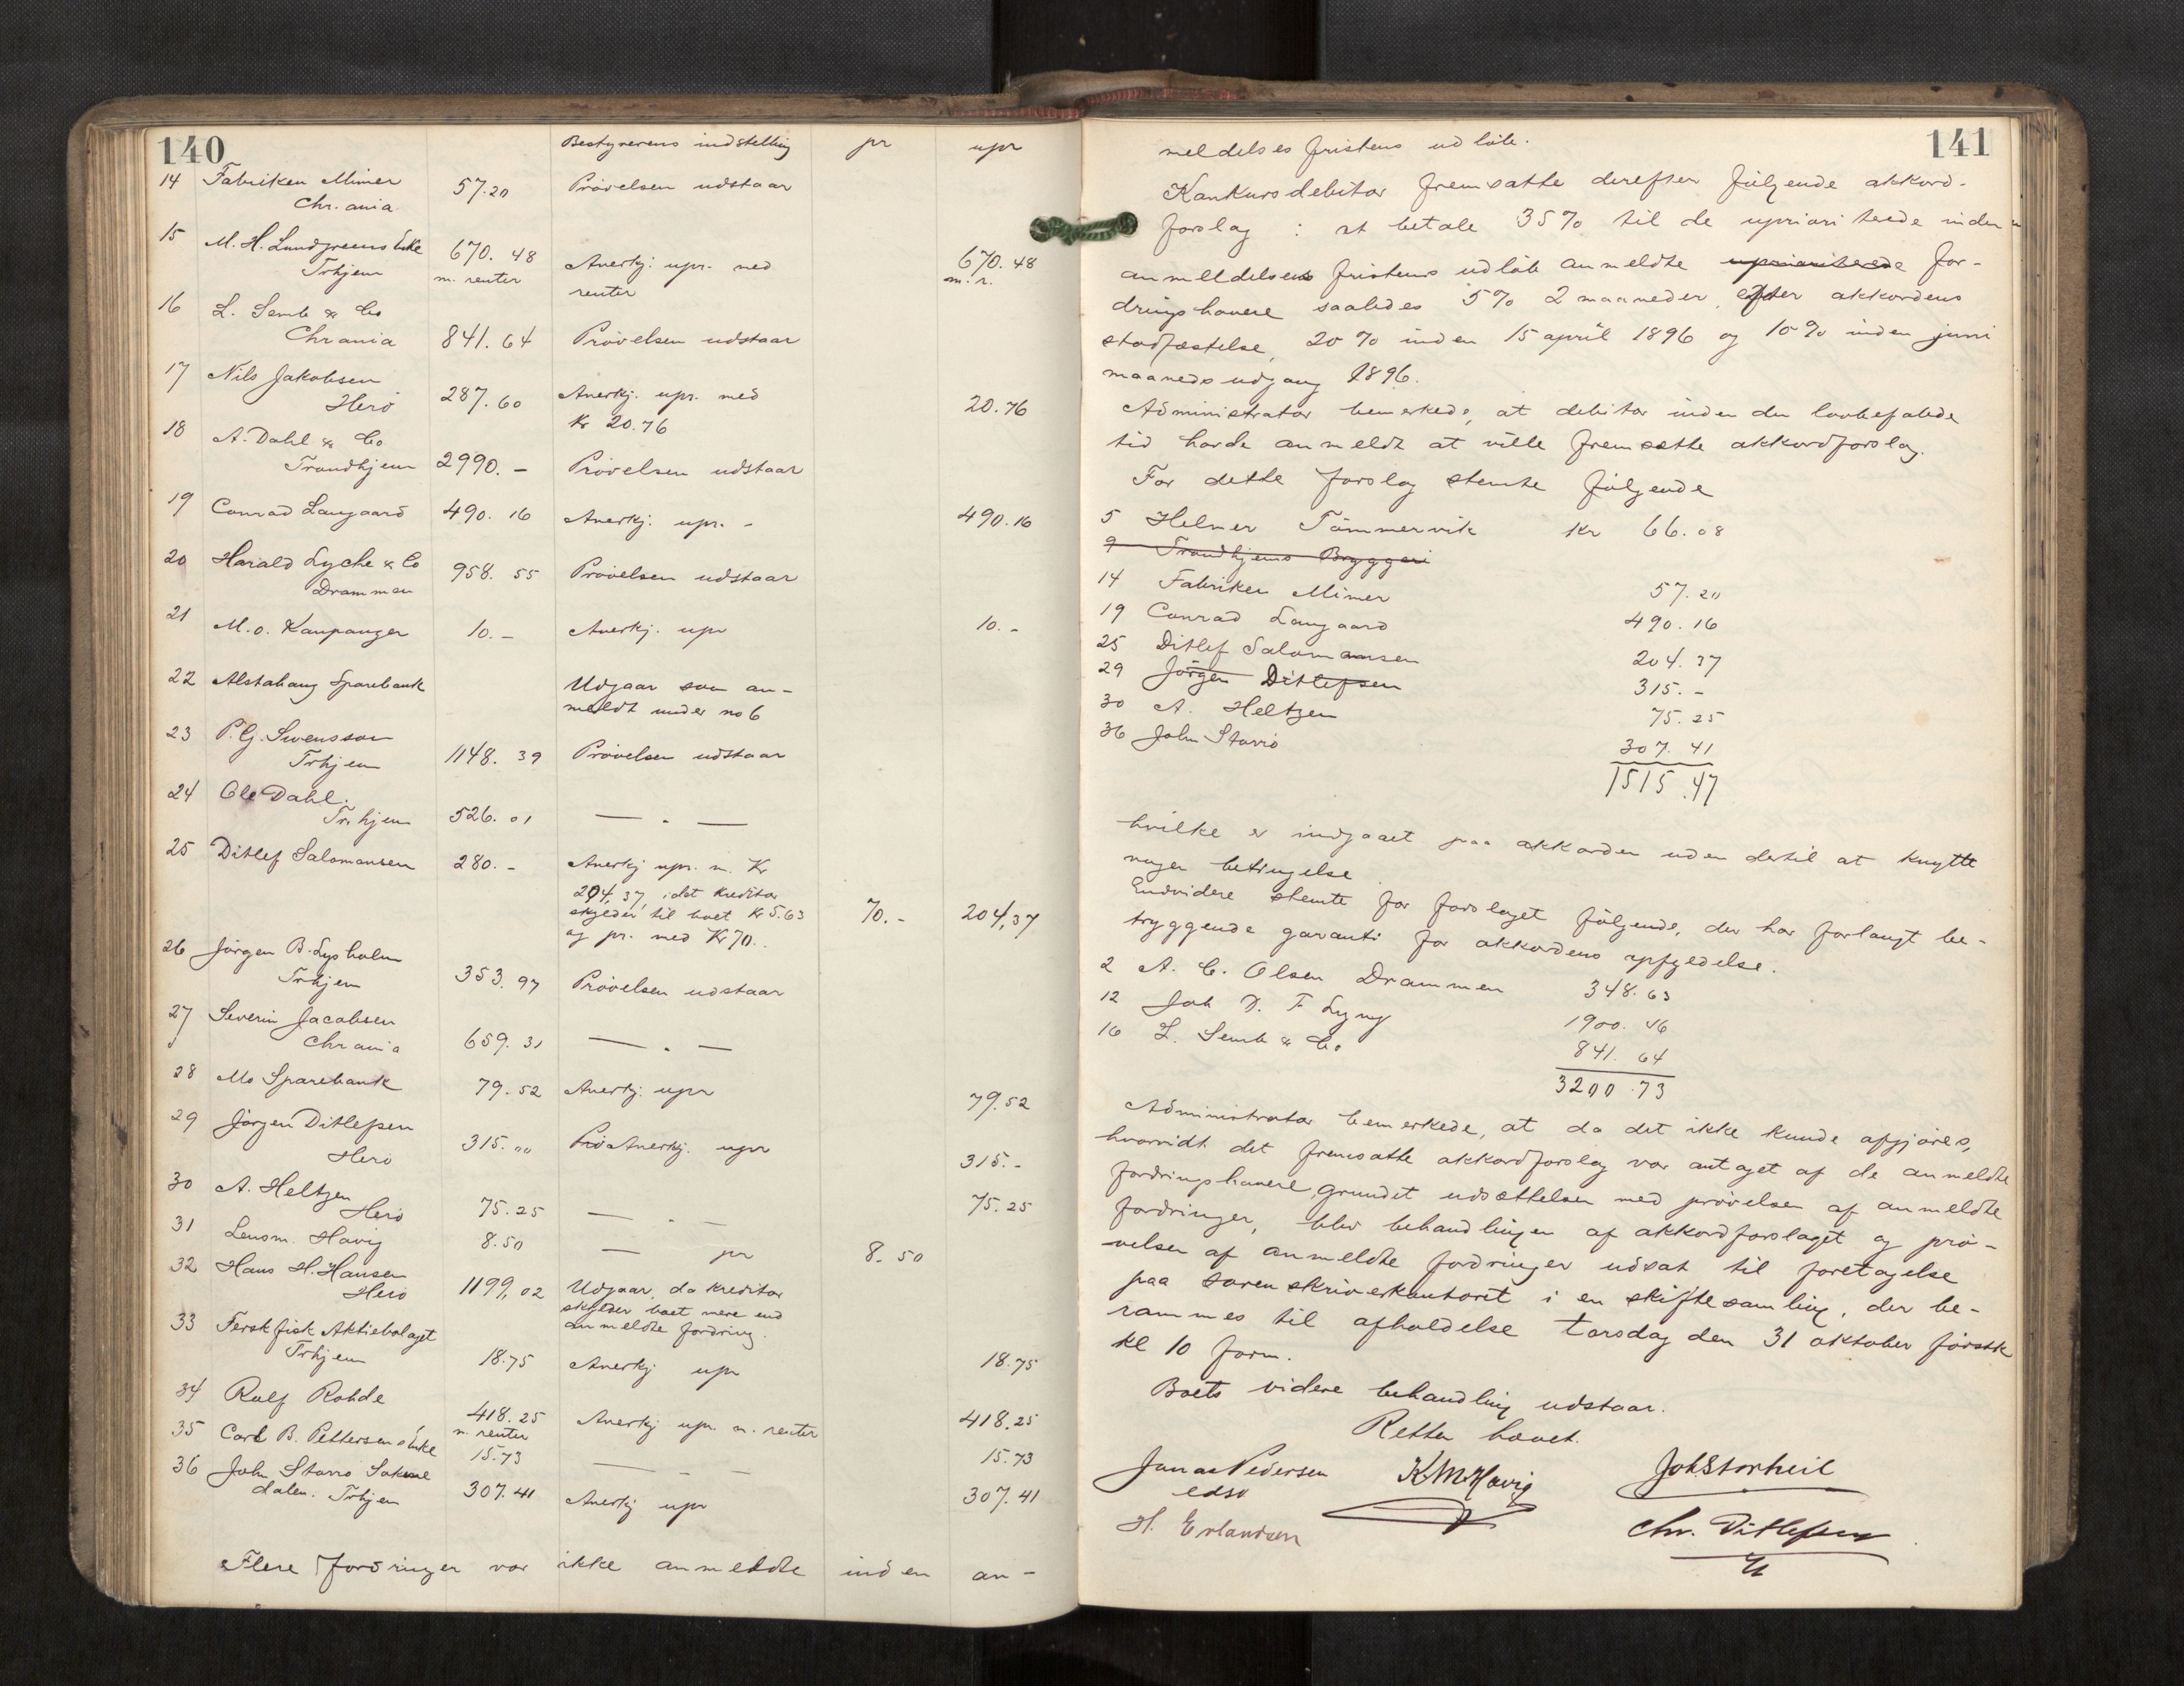 140
Bestyrerens indstilling pr upr
14 Fabriken Mimer 57.20 Prövelsen udstaar
Chr.ania
15 M. H. Lundgreens Enke 670.48 Anerkj. upr. med 670.48
Trhjem m. renter renter m. r.
16 L. Semb & Co
Chrania 841.64 Prövelsen udstaar
17 Nils Jakobsen
Herö 287.60 Anerkj. upr. med 20.76
Kr 20.76
18 A. Dahl & Co
Trondhjem 2990.- Prövelsen udstaar
19 Conrad Langaard 490.16 Anerkj. upr. - 490.16
20 Harald Lyche & Co 958.55 Prövelsen udstaar
Drammen
21 M. o. Kaupanger 10.- Anerkj. upr 10.-
22 Alstahaug Sparebank Udgaar som an-
meldt under no 6
23 P. G. Svensson
Trhjem 1148.39 Prövelsen udstaar
24 Ole Dahl.
Trhjem 526.01 — . —
25 Ditlef Salomonsen 280.- Anerkj upr. m. Kr
204,37, idet kreditor
skylder til boet Kr 5.63 70.- 204,37
og pr. med Kr 70..
26 Jörgen B. Lysholm
Trhjem 353.97 Prövelsen udstaar
27 Severin Jacobsen
Chrania 659.31 — . —
28 Mo Sparebank 79.52 Anerkj. upr 79.52
29 Jörgen Ditlefsen
Herö 315.00 Prö Anerkj. upr 315.-
30 A. Heltzen
Herö 75.25 — . — 75.25
31 Lensm. Havig 8.50 — pr 8.50
32 Hans H. Hansen
Herö 1199,02 Udgaar, da kreditor
skylder boet mere end
anmeldte fordring.
33 Fersk fisk Aktiebolaget
Trhjem 18.75 Anerkj upr 18.75
34 Rolf Rohde 418.25 Anerkj upr. m. renter 418.25
m. renter
35 Carl B. Pettersens Enke 15.73 — - — 15.73
36 John Stavrö Sakne
dalen. Trhjem 307.41 Anerkj upr 307.41
Flere fordringer var ikke anmeldte inden an-
141
meldelses fristens udlöb.
Konkursdebitor fremsatte derefter fölgende akkord-
forslag : at betale 35% til de uprioriterede inden
anmeldelses fristens udlöb anmeldte uprioriterede for-
dringshavere saaledes 5% 2 maaneder efter akkordens
stadfæstelse, 20% inden 15 april 1896 og 10% inden juni
maaneds udgang 1896.
Administrator bemerkede, at debitor inden den lovbefalede
tid havde anmeldt at ville fremsætte akkordforslag.
For dette forslag stemte fölgende
5 Helmer Tömmervik kr 66.08
9 Trondhjems Bryggeri
14 Fabriken Mimer 57.20
19 Conrad Langaard 490.16
25 Ditlef Salomonsen 204.37
29 Jörgen Ditlefsen 315.-
30 A. Heltzen 75.25
36 John Stavrö 307.41
1515.47
hvilke er indgaaet paa akkorden uden dertil at knytte
nogen betingelse.
Endvidere stemte for forslaget fölgende, der har forlangt be-
tryggende garanti for akkordens opfyldelse.
2 A. C. Olsen Drammen 348.63
12 Joh D. F Lyng 1900.46
16 L. Semb & Co 841.64
3200.73
Administrator bemerkede, at da det ikke kunde afgjöres,
hvorvidt det fremsatte akkordforslag var antaget af de anmeldte
fordringshavere, grundet udsættelsen med prövelsen af anmeldte
fordringer, blev behandlingen af akkordforslaget og prö-
velsen af anmeldte fordringer udsat til foretagelse
paa sorenskriverkontoret i en skiftesamling, der be-
rammes til afholdelse torsdag den 31 oktober förstk
kl 10 form.
Boets videre behandling udstaar.
Retten hævet.
Jonas Pedersen K M Havig Joh. Storheil
edsv
H. Erlandsen Chr. Ditlefsen